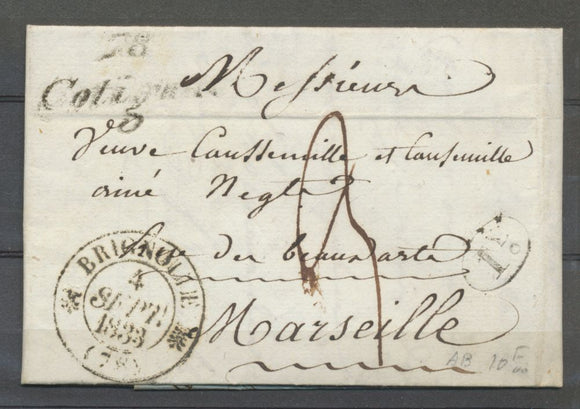 78
Cotignac
Messieurs
Veuve Caussemille et Causemille
ainé Negts
rue des beaux arts
Marseille
BRIGNOLLE
4
SEPT.
1833
(78)
AB 10